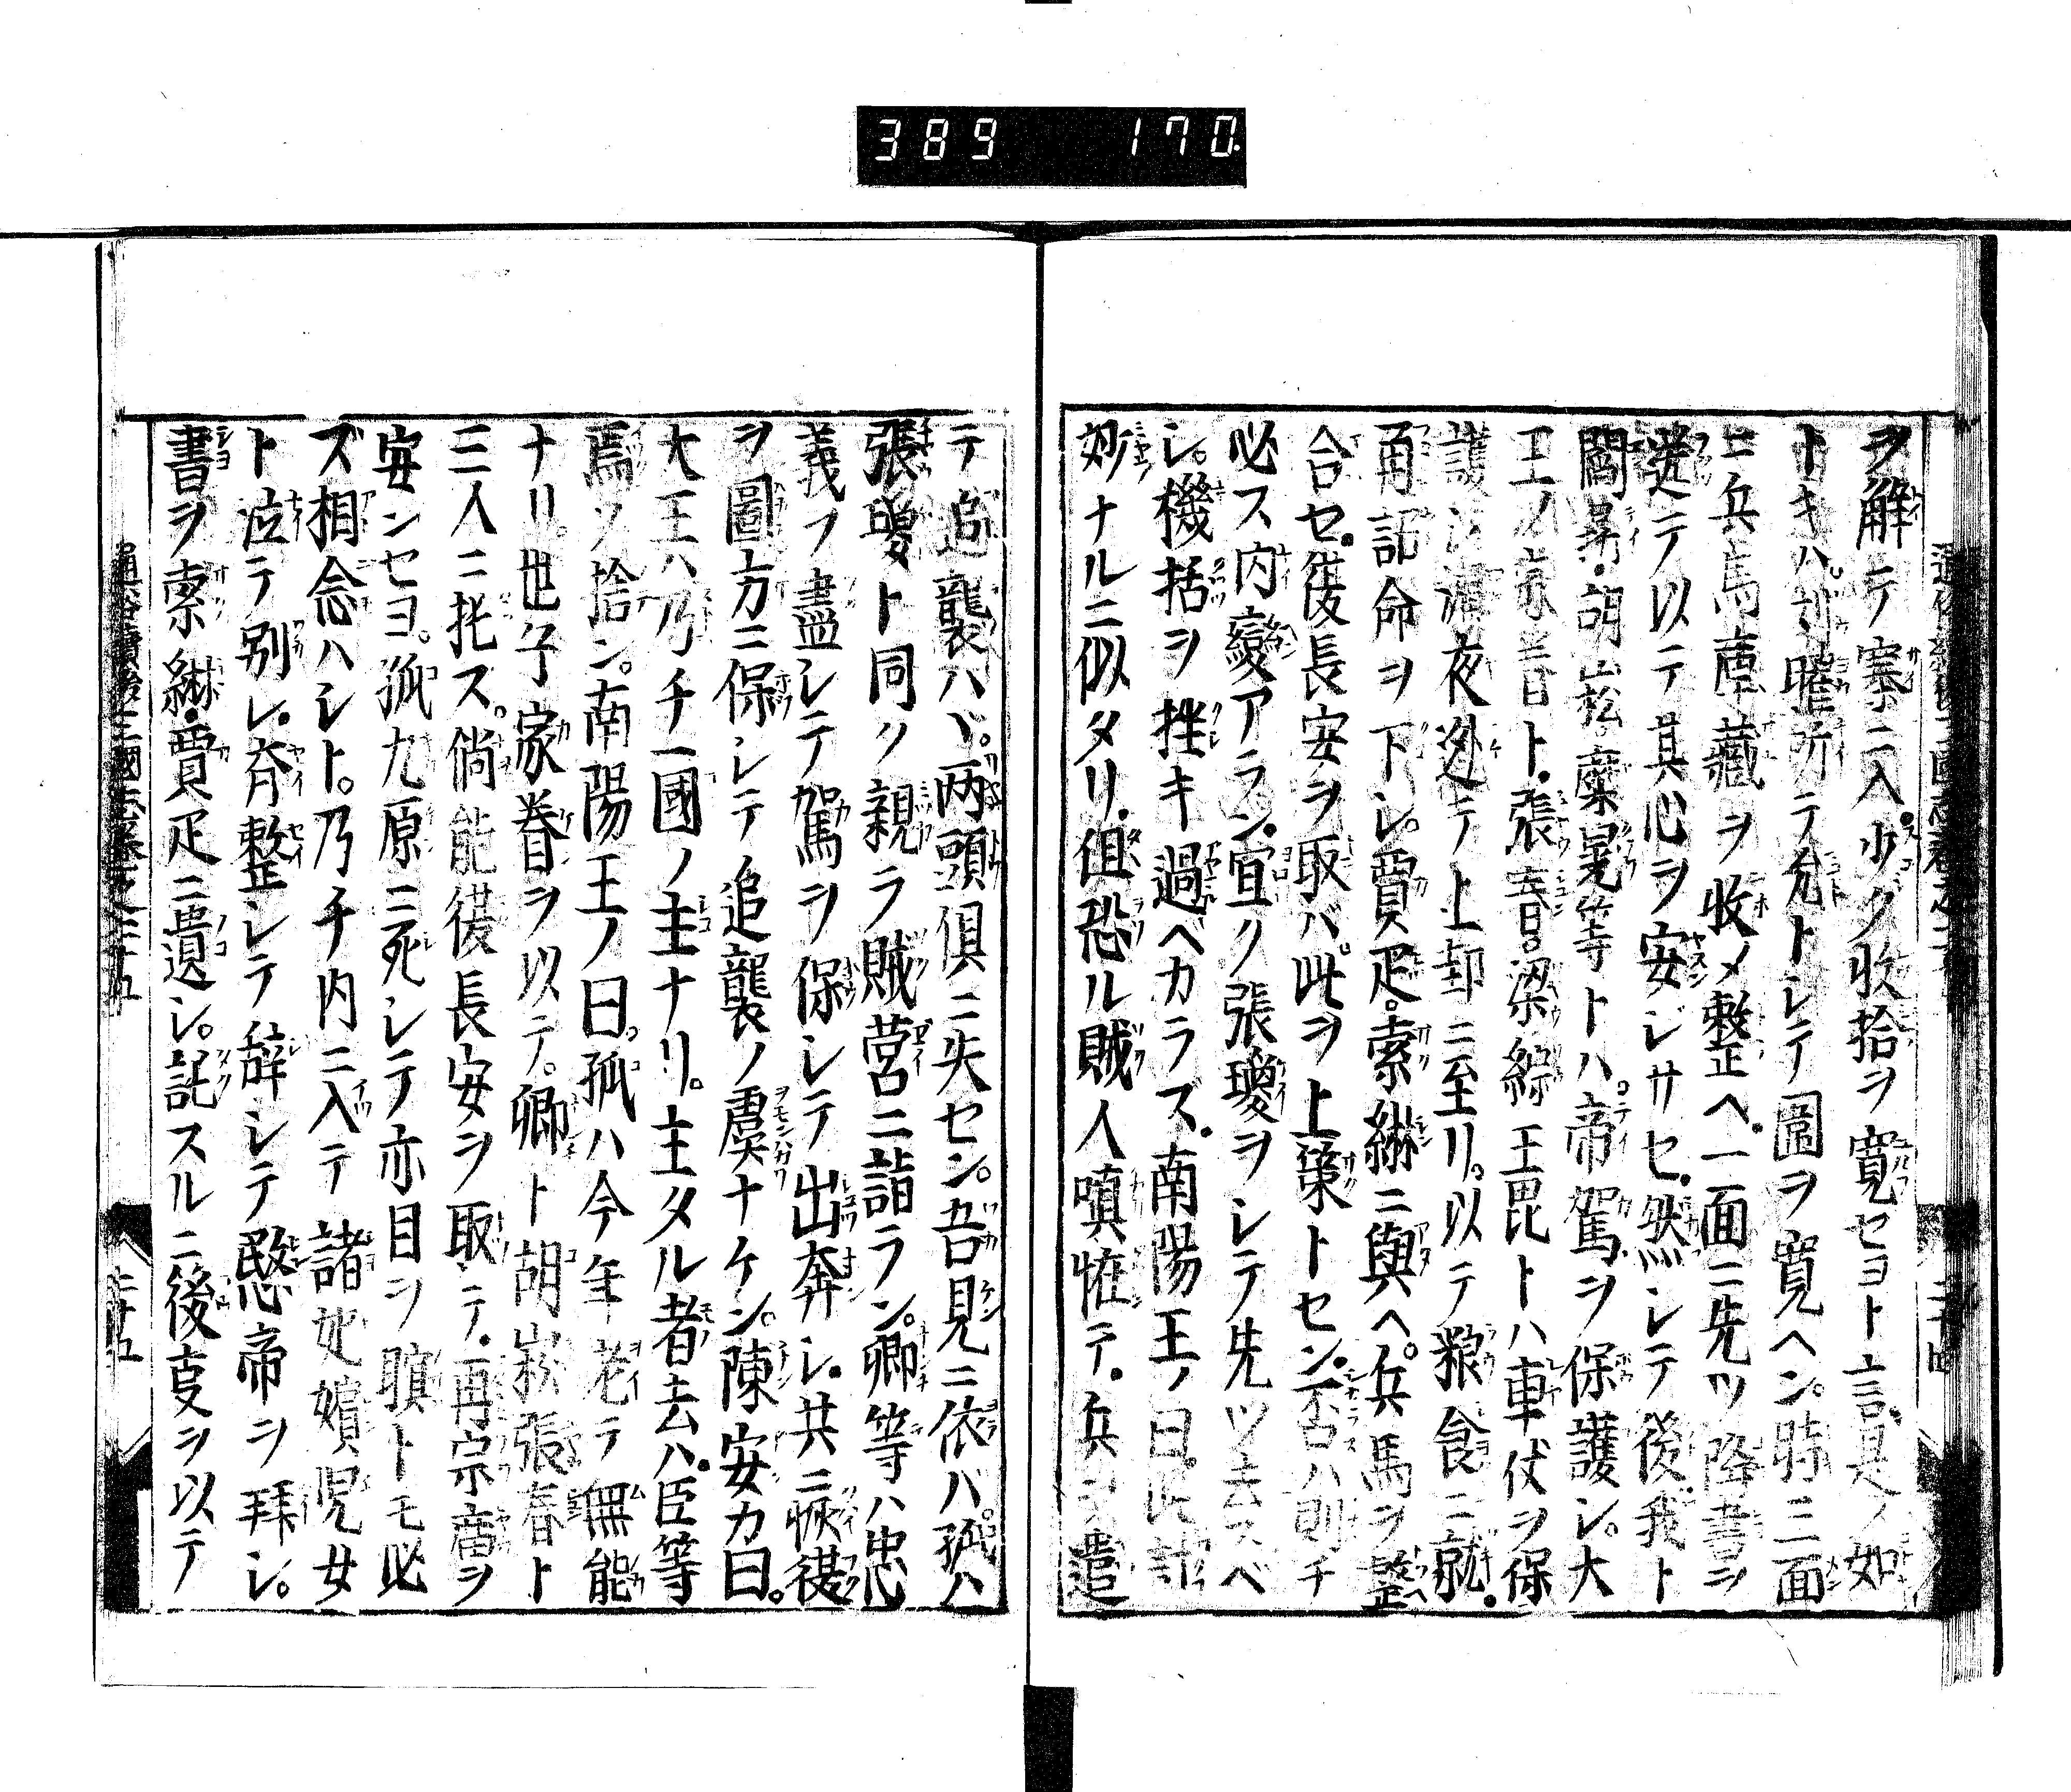 389 170.
ヲ解テ寨ニ入。少ク收拾ヲ寛セヨト言。是ノ如
トキハ。劉曜所テ允トシテ圖ヲ寛ヘン。時三面
ニ兵馬庫藏ヲ收メ整ヘ。一面ニ先ツ降書ヲ
送テ以テ其心ヲ安ンジサセ。然シテ後我ト
閻鼎・胡崧・麋晃等トハ。帝駕ヲ保護シ。大
王ノ家眷ト。張春。梁綜王毘トハ車仗ヲ保
護シ。夜迯テ上邽ニ至リ。以テ粮食ニ就。
再記命ヲ下シ。賈疋。索綝ニ與ヘ。兵馬ヲ整
合セ。復長安ヲ取バ。此ヲ上策トセン。否ハ則チ
必ス内變アラン。宜ク張瓊ヲシテ先ツ去スベ
シ。機括ヲ挫キ過ベカラズ。南陽王ノ曰。此計
妙ナルニ似タリ。但恐ル賊人嗔恠テ。兵ヲ遣
テ追襲ハヾ。两頭俱ニ失セン。吾見ニ依バ。孤ハ
張瓊ト同ク親ラ賊営ニ詣ラン。卿等ハ忠
義ヲ盡シテ駕ヲ保シテ出奔シ。共ニ恢復
ヲ圖ラバ方ニ保シテ追襲ノ虞ナケン。陳安カ曰。
大王ハ乃チ一國ノ主ナリ。主タル者去ハ。臣等
焉ソ捨ン。南陽王ノ曰。孤ハ今年老テ無能
ナリ。世子家眷ヲ以テ。卿ト胡崧張春ト
三人ニ托ス。倘能復長安ヲ取テ。再宗廟ヲ
安ンセヨ。孤九原ニ死シテ亦目ヲ瞑トモ必
ズ相念ハシト。乃チ内ニ入テ諸妃嬪児女
ト泣テ別レ。斉整シテ辞シテ愍帝ヲ拜シ。
書ヲ索綝・賈疋ニ遺シ。託スルニ後㕝ヲ以テ